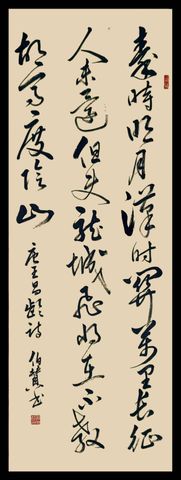 秦時明月漢時關萬里長征
人未還但使龍城飛將在不教
胡馬度陰山
唐王昌齡詩 伯贊書